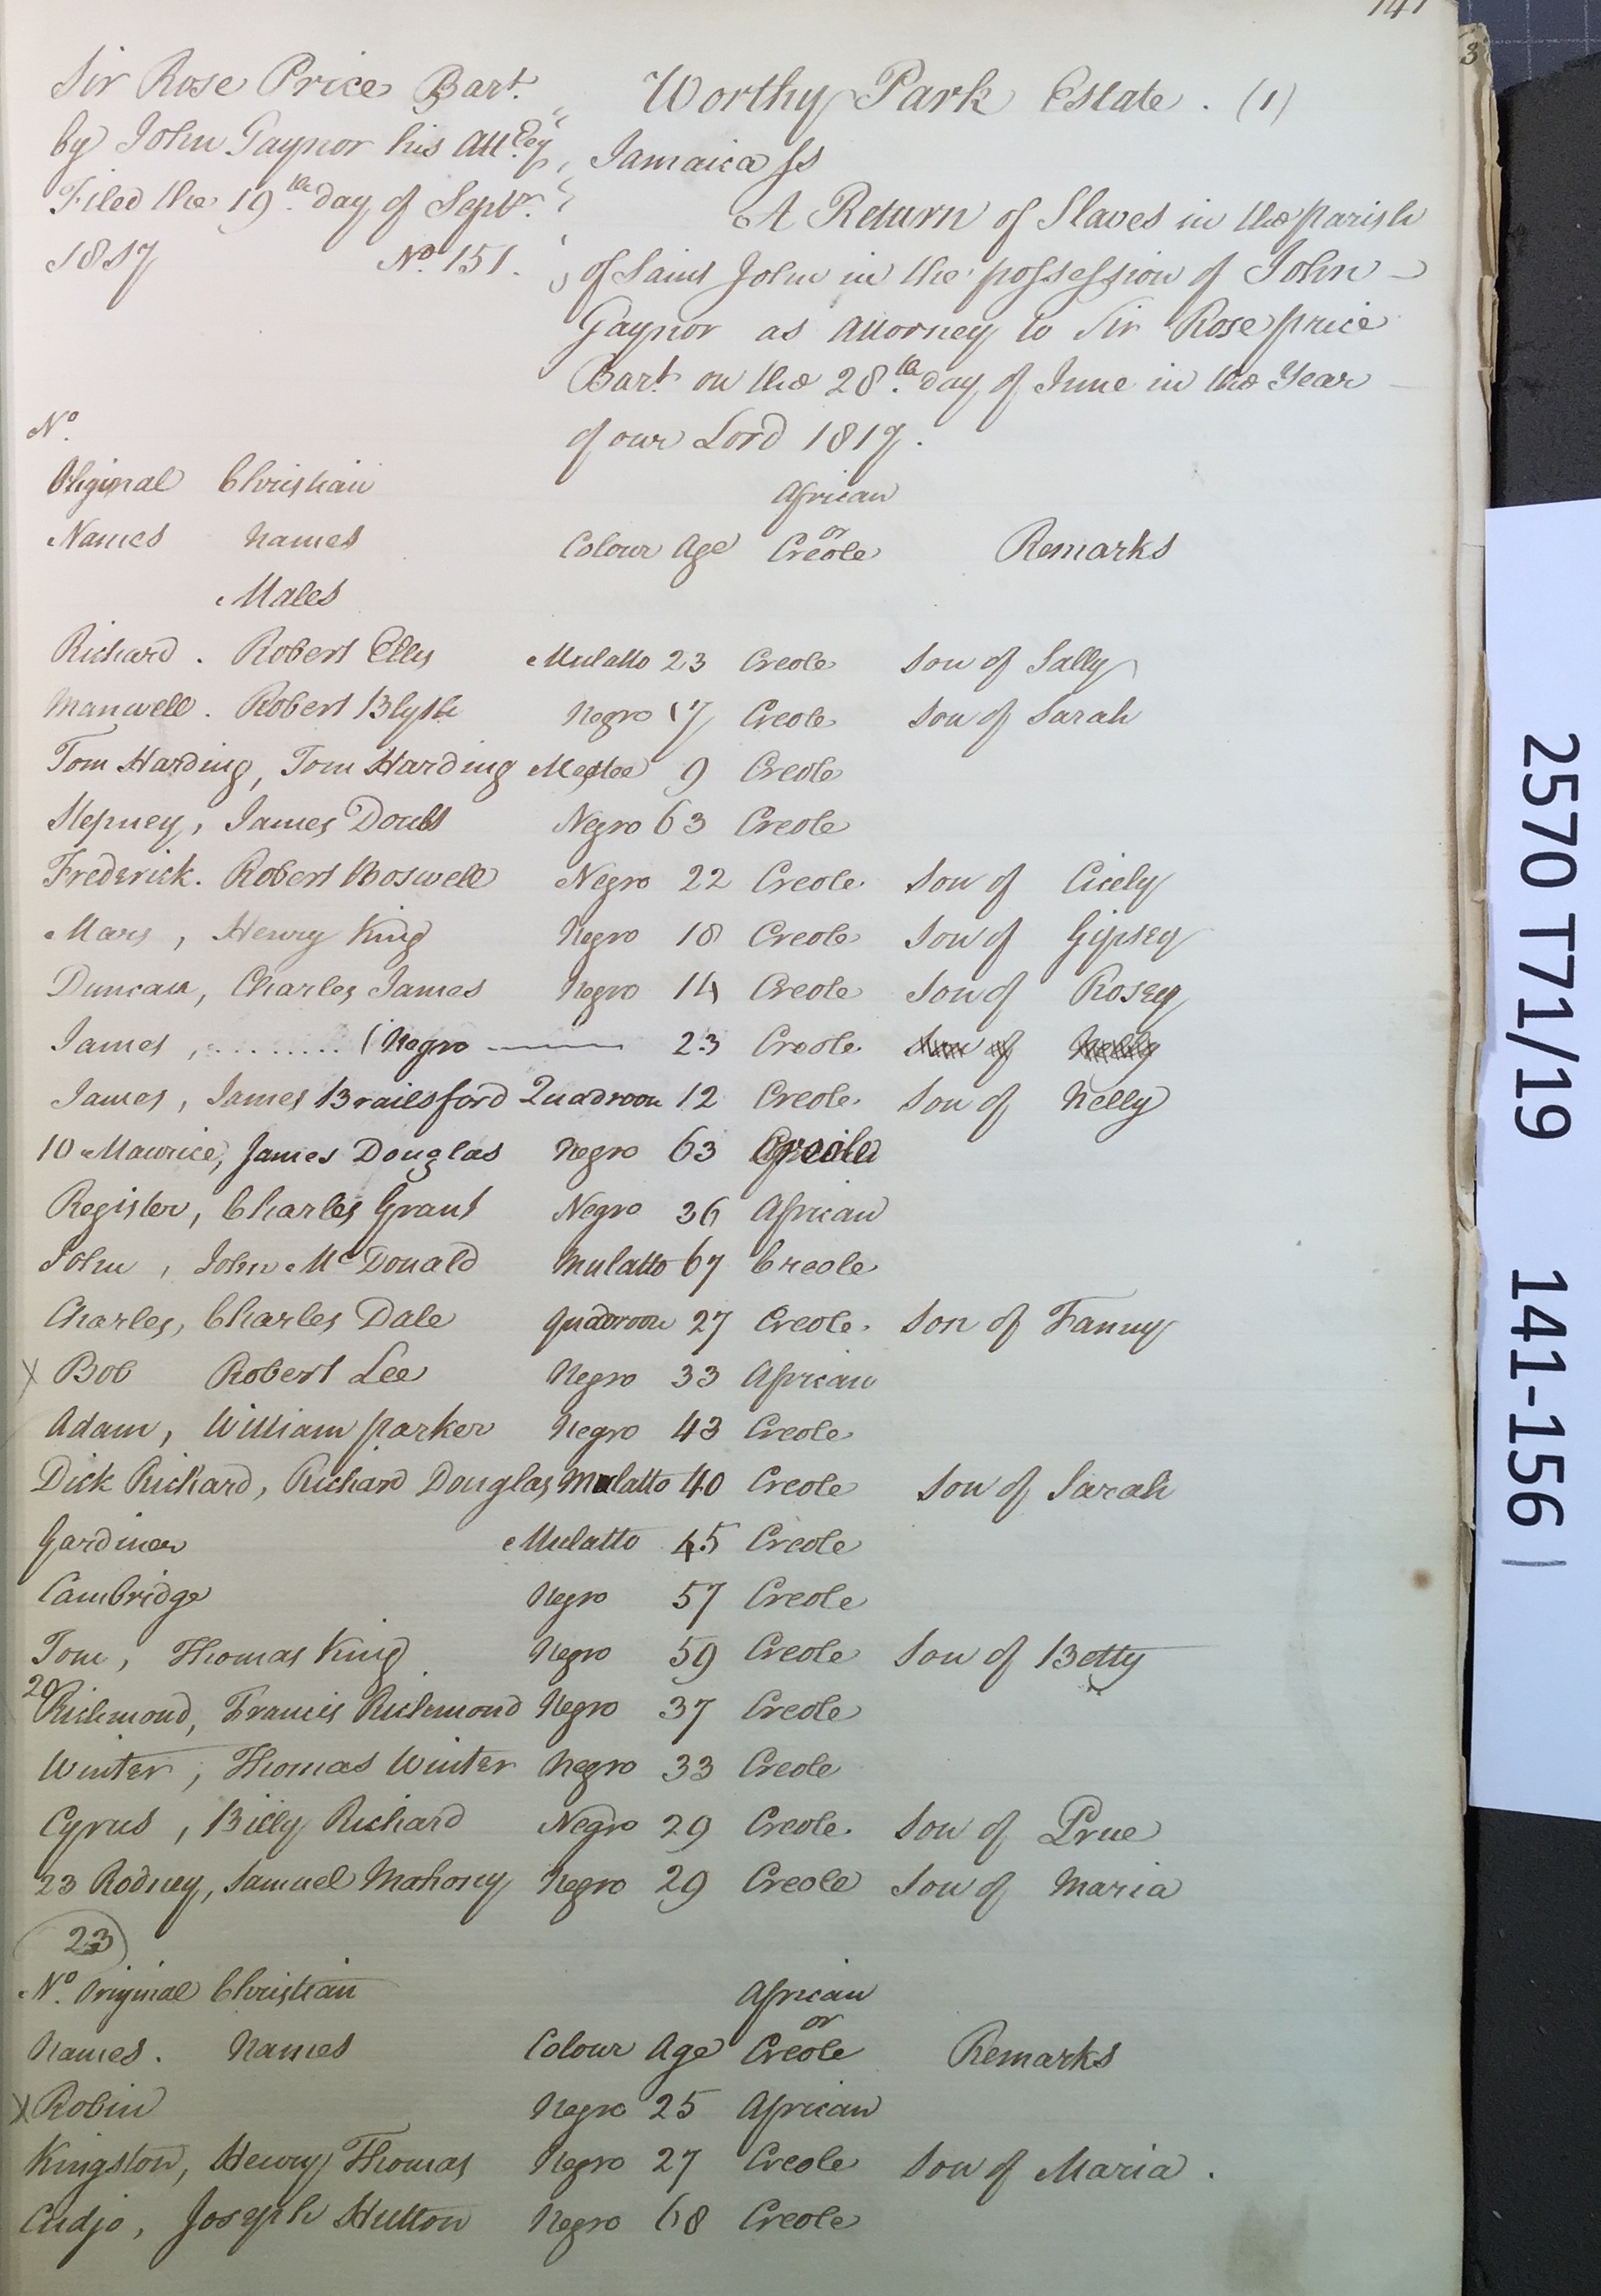 141
3
Sir Rose Price Bart.
by John Gaynor his Att.ey
Filed the 19.th day of Septr.
1817 No. 151.
Worthy Park Estate. (1)
Jamaica ss
A Return of Slaves in the parish
of Saint John in the possession of John
Gaynor as Attorney to Sir Rose price
Bart. on the 28.th day of June in the Year
of our Lord 1817.
No.
Original Christian African
Names Names Colour Age or Creole Remarks
Males
Richard. Robert Ellis Mulatto 23 Creole Son of Sally
Manwell. Robert Blyth Negro 17 Creole Son of Sarah
Tom Harding, Tom Harding Mestee 9 Creole
Stepney, James Doubt Negro 63 Creole
Frederick. Robert Boswell Negro 22 Creole Son of Cicely
Mars, Henry King Negro 18 Creole Son of Gipsey
Duncan, Charles James Negro 14 Creole Son of Rosey
James, ......... (Negro 23 Creole Son of Nelly
James, James Brailsford Quadroon 12 Creole Son of Nelly
10 Maurice, James Douglas Negro 63 Creole
Register, Charles Grant Negro 36 African
John, John McDonald Mulatto 67 Creole
Charles, Charles Dale quadroon 27 Creole. Son of Fanny
X Bob Robert Lee Negro 33 African
Adam, William parker Negro 43 Creole
Dick Richard, Richard Douglas Mulatto 40 Creole Son of Sarah
Gardiner Mulatto 45 Creole
Cambridge Negro 57 Creole
Tom, Thomas King Negro 59 Creole Son of Betty
20 Richmond, Francis Richmond Negro 37 Creole
Winter, Thomas Winter Negro 33 Creole
Cyrus, Billy Richard Negro 29 Creole. Son of Prue
23 Rodney, Samuel Mahony Negro 29 Creole Son of Maria
23
No. Original Christian African
Names. Names Colour Age or Creole Remarks
X Robin Negro 25 African
Kingston, Henry Thomas Negro 27 Creole Son of Maria.
Cudjo, Joseph Hutton Negro 68 Creole
2570 T71/19 141-156